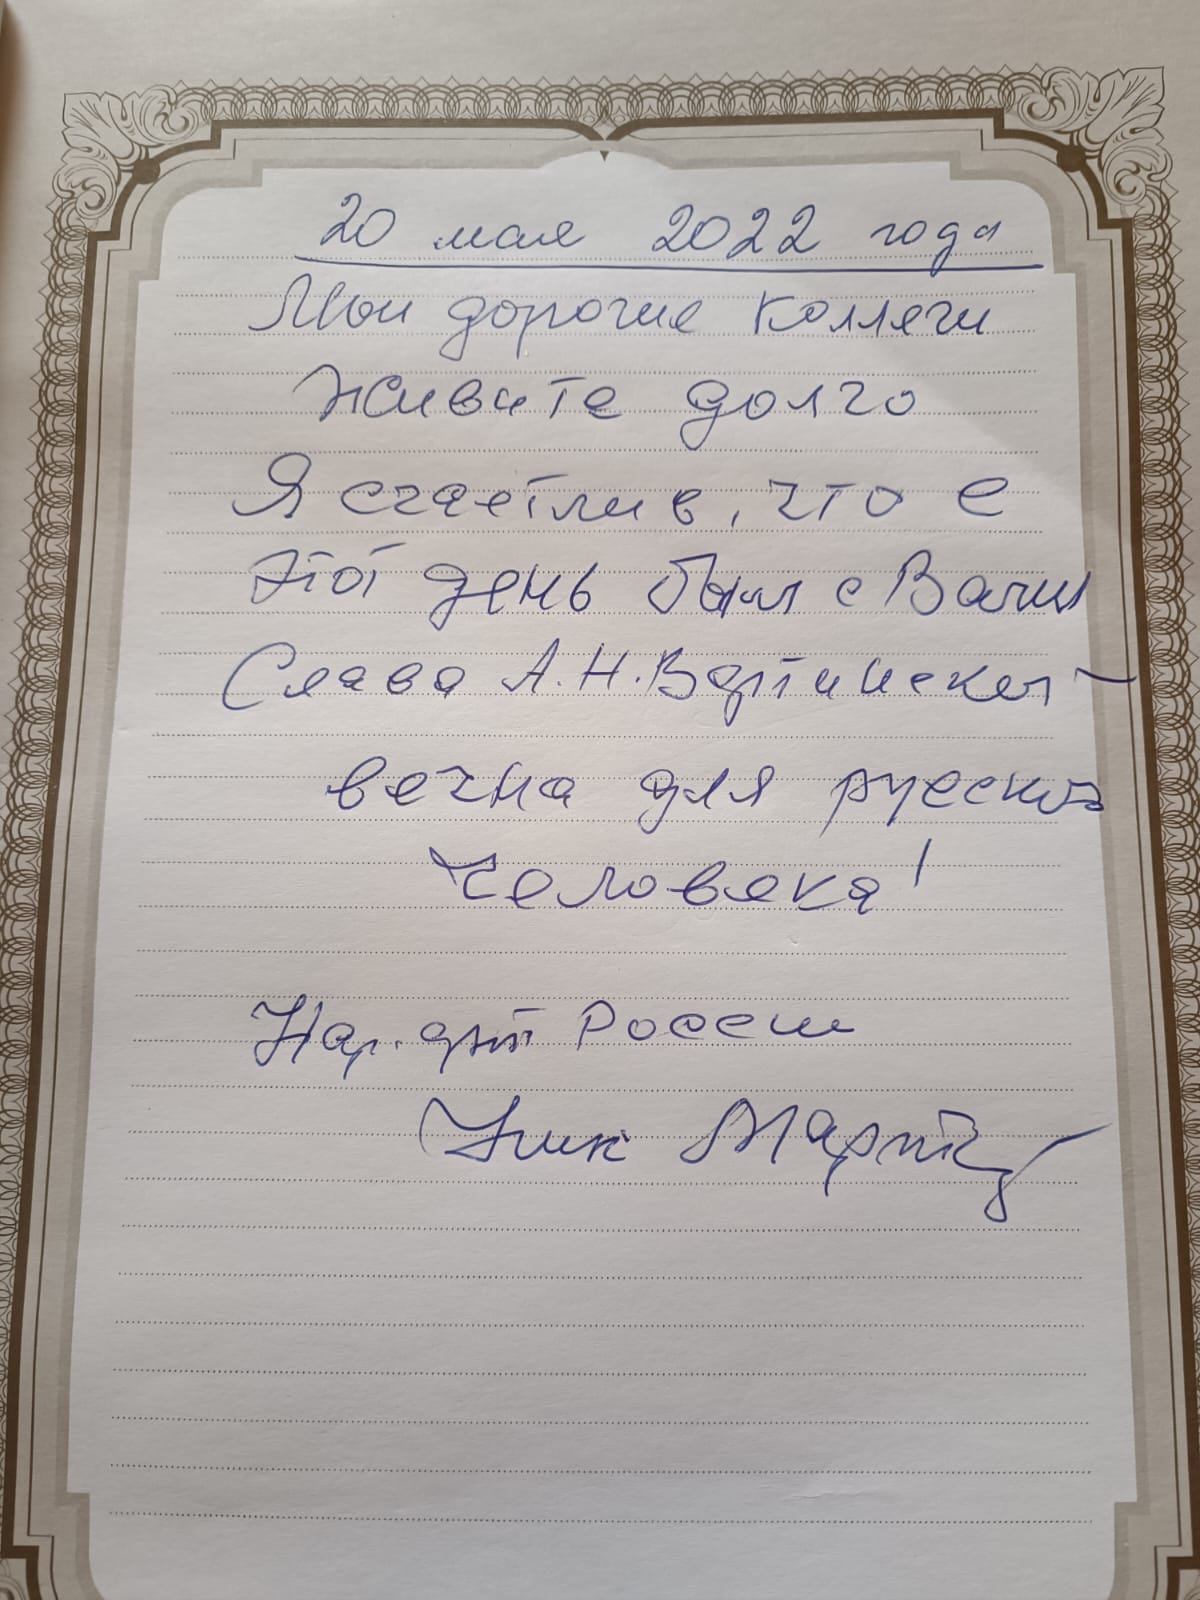 20 мая 2022 года
Мои дорогие коллеги
Живите долго
Я счастлив, что в
этот день был с Вами
Слава А.Н. Вертинского
вечна для русского
человека!
Нар. арт. России
Ник